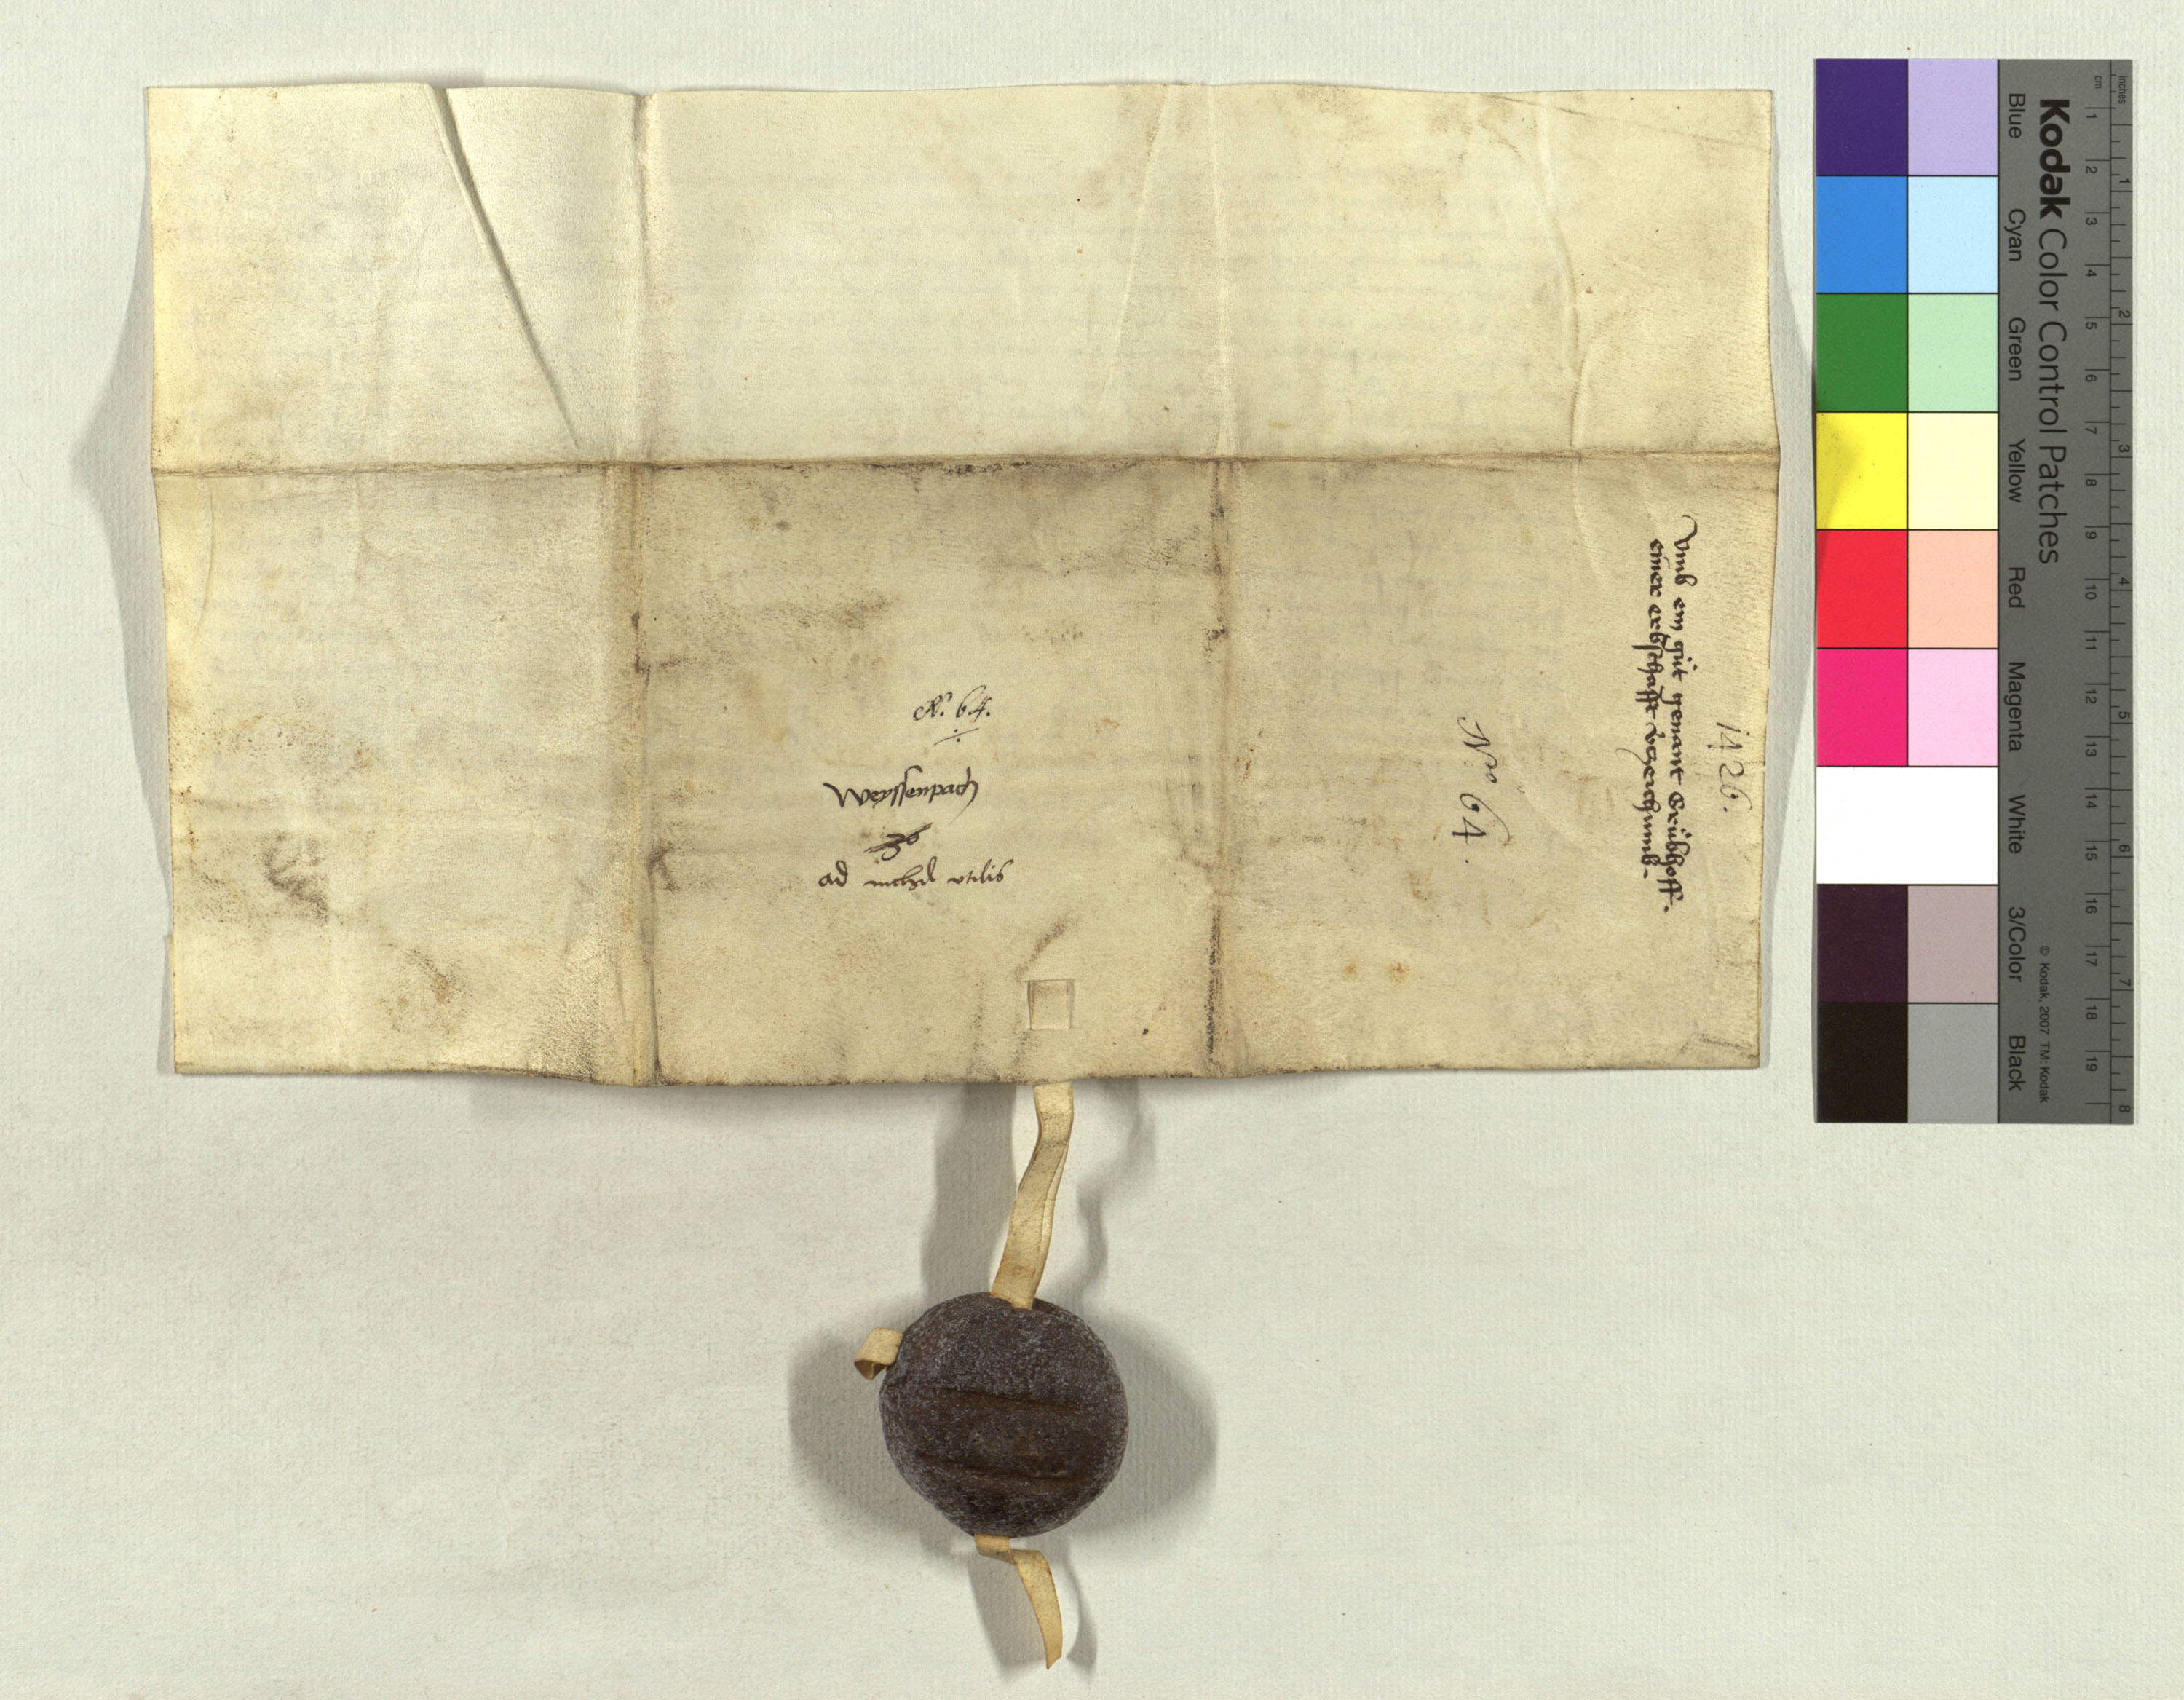 N. 64.
Weyssenpach
36
ad nichil utilis
Nro 64.
vmb ein gut genant Grubhoff.
einer erbschafft
1426.
Kodak Color Control Patches
© Kodak, 2007 TM: Kodak
Blue Cyan Green Yellow Red Magenta White 3/Color Black
cm 1 2 3 4 5 6 7 8 9 10 11 12 13 14 15 16 17 18 19
inches 1 2 3 4 5 6 7 8